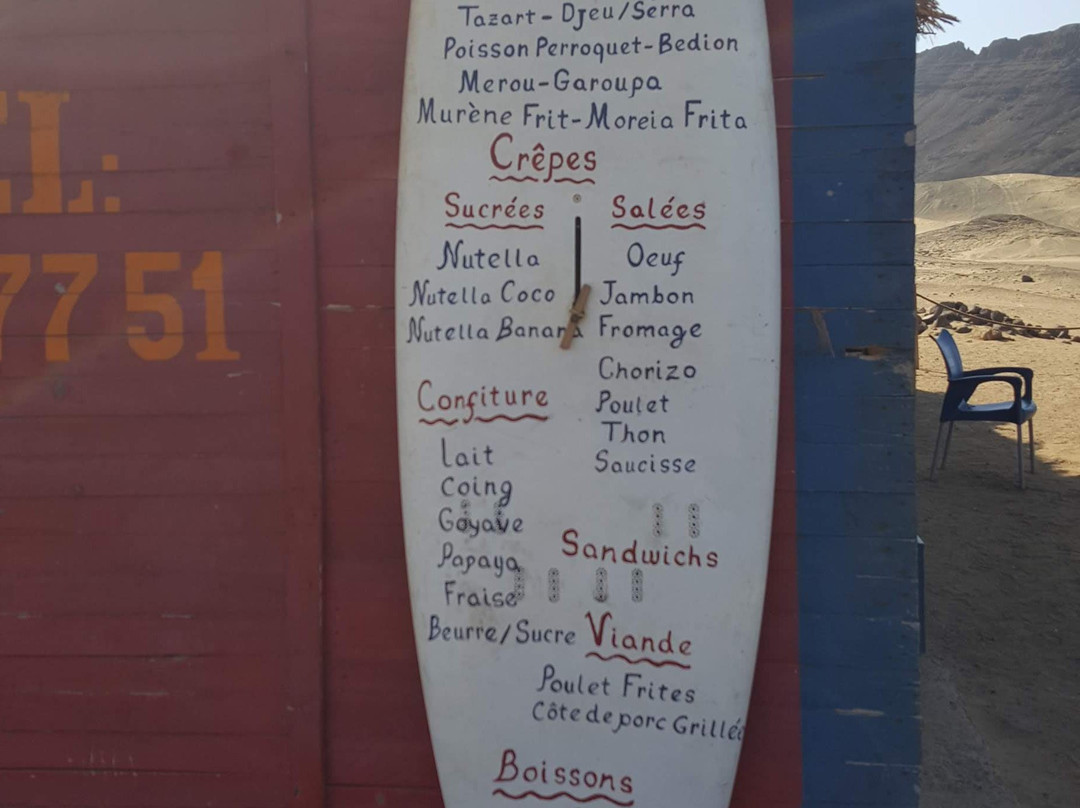 EL:
77 51
Tazart - Djeu/Serra
Poisson Perroquet-Bedion
Merou-Garoupa
Murène Frit-Moreia Frita
Crêpes
Sucrées
Nutella
Nutella Coco
Nutella Banana
Confiture
Lait
Coing
Goyave
Papaya
Fraise
Beurre/Sucre
Salées
Oeuf
Jambon
Fromage
Chorizo
Poulet
Thon
Saucisse
Sandwichs
Viande
Poulet Frites
Côte de porc Grillée
Boissons